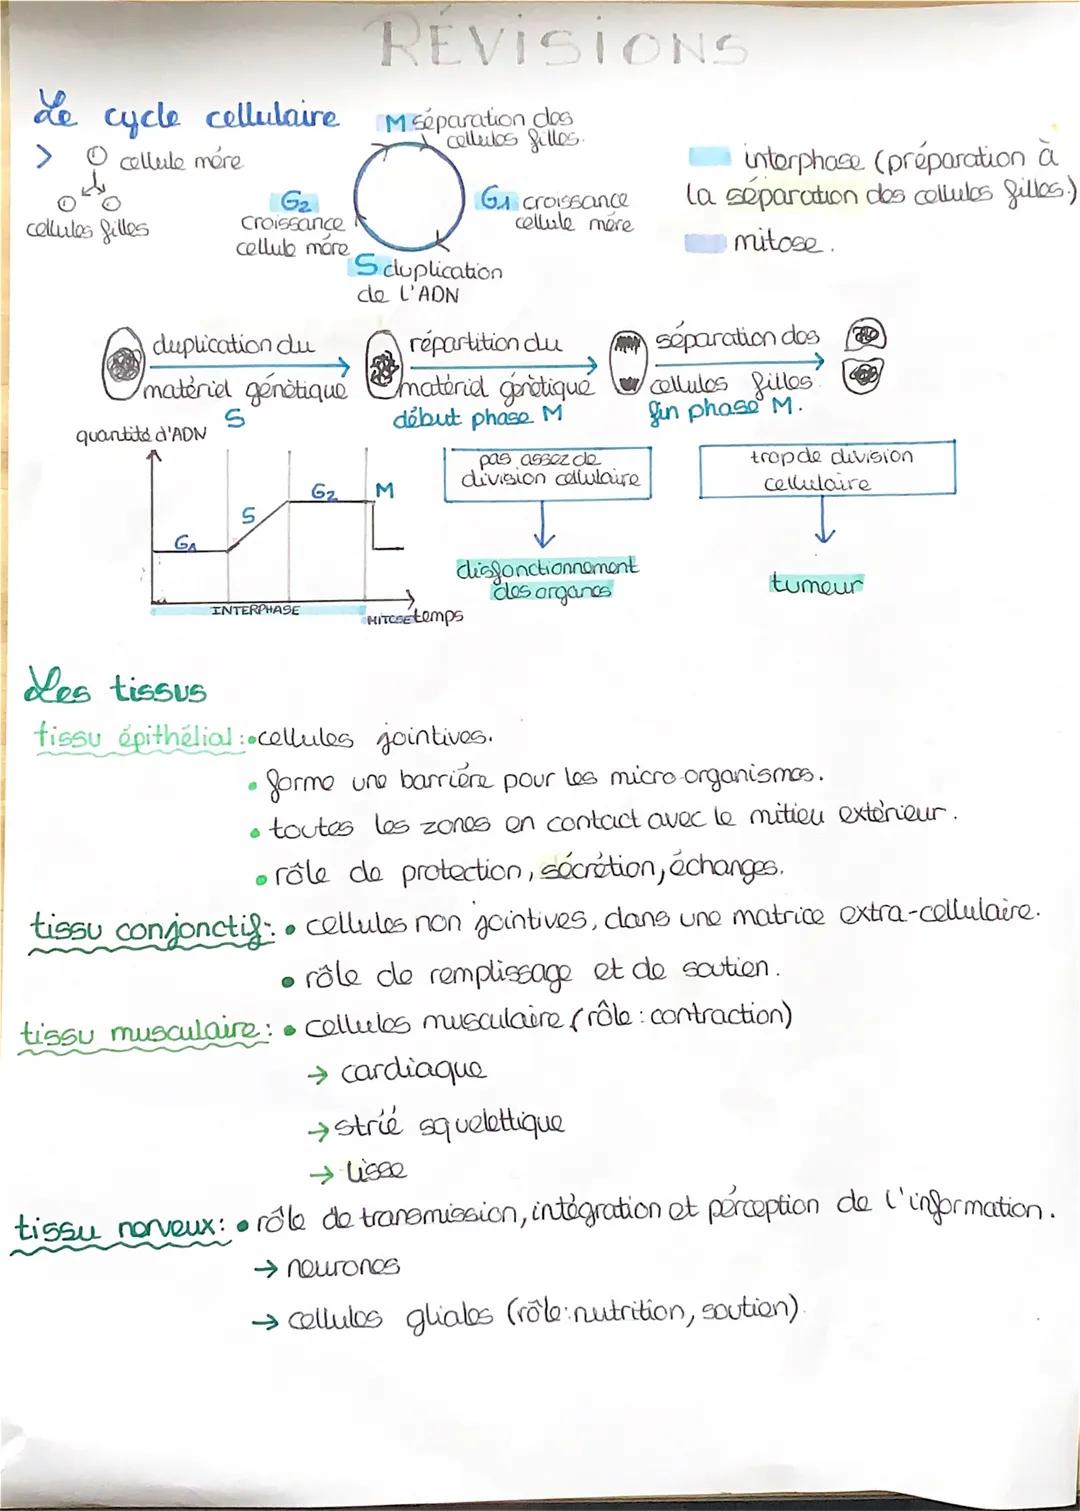 RÉVISIONS
Le cycle cellulaire
> cellule mère
cellules filles
M séparation des
cellules filles.
G1 croissance
cellule mère
G2
croissance
cellule mère
S duplication
de l'ADN
interphase (préparation à
la séparation des cellules filles.)
mitose.
duplication du
matériel génétique
S
répartition du
matériel génétique
début phase M
séparation des
cellules filles.
fin phase M.
quantité d'ADN
G1
S
G2
M
INTERPHASE
MITOSE
temps
pas assez de
division cellulaire
disfonctionnement
des organes
trop de division
cellulaire
tumeur
Les tissus
tissu épithélial : • cellules jointives.
• forme une barrière pour les micro-organismes.
• toutes les zones en contact avec le milieu extérieur.
• rôle de protection, sécrétion, échanges.
tissu conjonctif : • cellules non jointives, dans une matrice extra-cellulaire.
• rôle de remplissage et de soutien.
tissu musculaire : • cellules musculaire (rôle : contraction)
→ cardiaque
→ strié squelettique
→ lisse
tissu nerveux : • rôle de transmission, intégration et perception de l'information.
→ neurones
→ cellules gliales (rôle : nutrition, soutien).